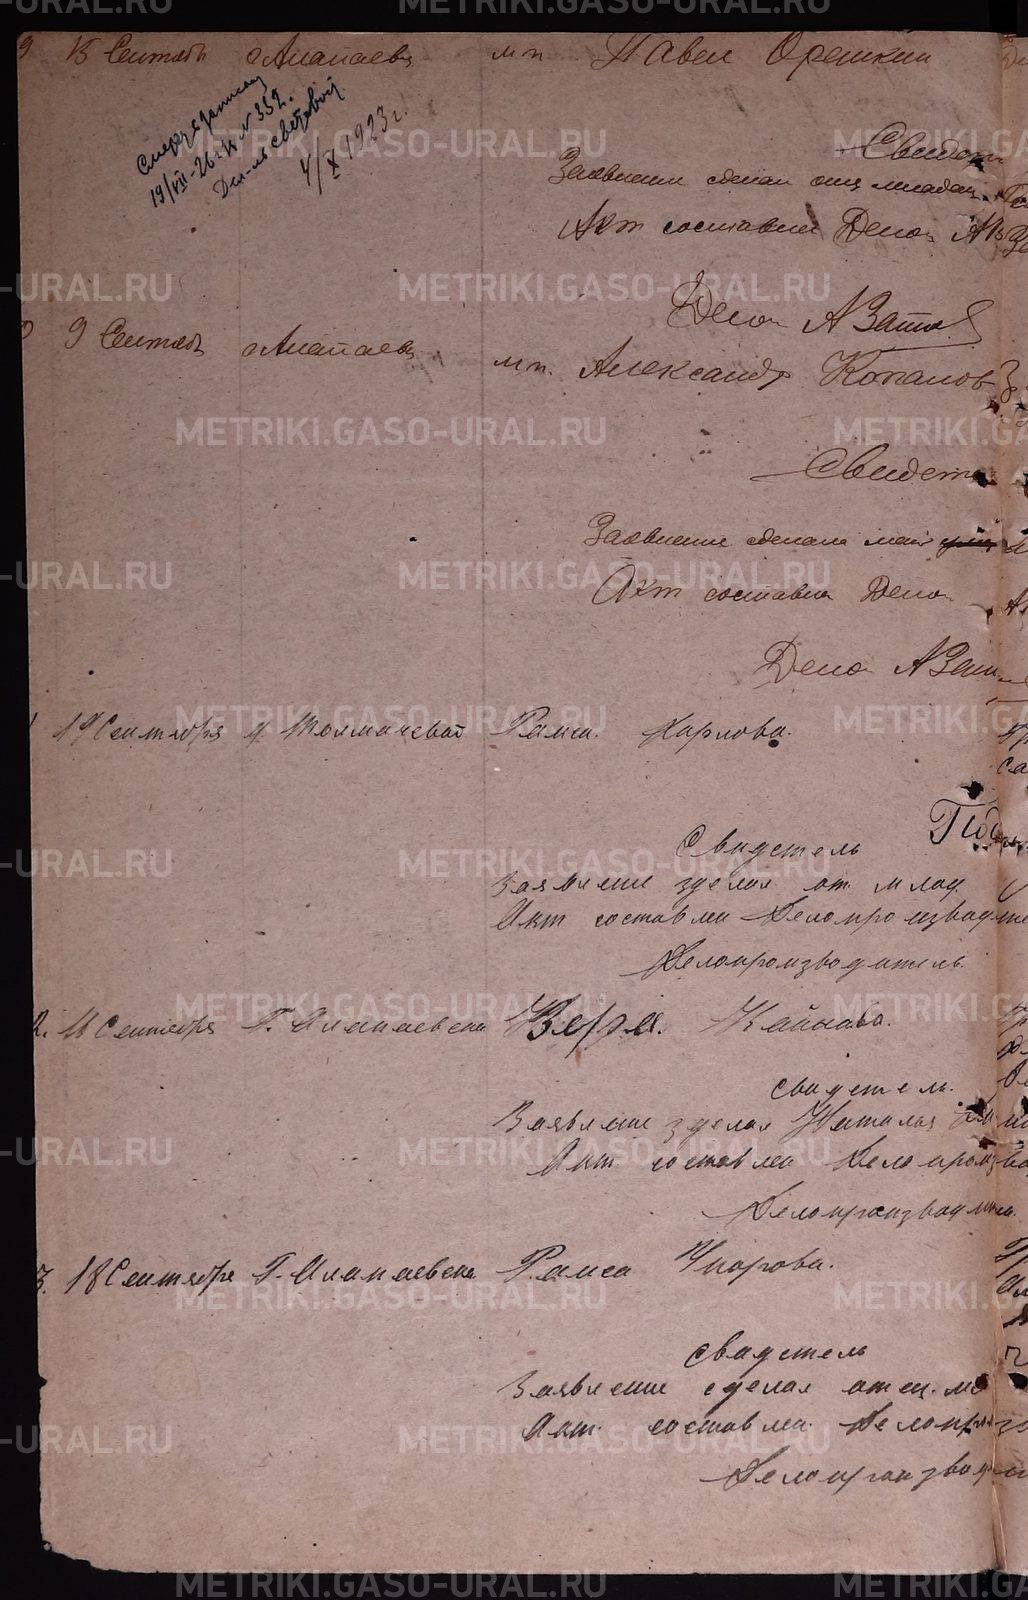 9 15 Сентяб г Алапаев мп. Павел Орешкин
Смерть записана
19/VII-26 г. N 352.
Дел-ль
4/X 1923 г.
Свидет
Заявление сделал отец младен.
Акт составил Дело
Дело АЗато
9 Сентяб г Алапаев мп. Александр Копалов
Свидет
Заявление сделала мать
Акт составил Дело
Дело АЗат
19 Сентября д. Толмачевой Раиса Карлова.
Под
Свидетель
Заявление зделал от. млад.
Акт составлен Делопроизводите
Делопроизводитель
2. 11 Сентября Г. Алапаевска Вера
свидетель.
Заявление зделал Наталья
Акт составлен Делопроизво
Делопроизводител
3. 18 Сентября Г. Алапаевска Раиса Упорова.
свидетель
Заявление сделал отец. м
Акт. составлен. Делопр
Делопроизвод